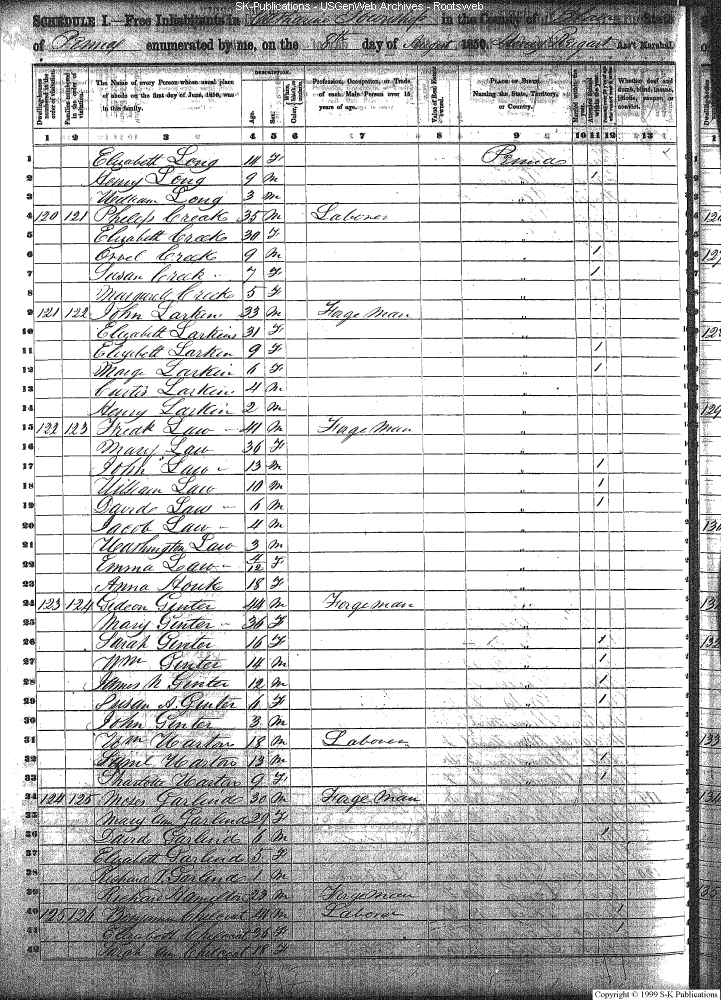 SK-Publications - USGenWeb Archives - Rootsweb
SCHEDULE I.—Free Inhabitants in Catharine Township in the County of Blair State
of Penna enumerated by me, on the 8th day of August 1850. Ass't Marshal.
Dwelling-houses numbered in the order of visitation.
Families numbered in the order of visitation.
The Name of every Person whose usual place of abode on the first day of June, 1850, was in this family.
DESCRIPTION.
Age.
Sex.
Profession, Occupation, or Trade of each Male Person over 15 years of age.
Value of Real Estate owned.
PLACE OF BIRTH. Naming the State, Territory, or Country.
Whether deaf and dumb, blind, insane, idiotic, pauper, or convict.
1 2 3 4 5 6 7 8 9 10 11 12 13
1 Elizabeth Long 14 F Penna
2 Henry Long 9 M " 1
3 William Long 3 M "
4 120 121 Philip Creek 35 M Laborer "
5 Elizabeth Creek 30 F "
6 Creek 9 M " 1
7 Susan Creek 7 F " 1
8 Margaret Creek 5 F "
9 121 122 John Larkins 33 M Forge Man "
10 Elizabeth Larkins 31 F "
11 Elizabeth Larkin 9 F " 1
12 Larkin 6 F " 1
13 Curtis Larkin 4 M "
14 Henry Larkin 2 M "
15 122 123 Law 41 M Forge Man "
16 Mary Law 36 F "
17 John Law 13 M " 1
18 William Law 10 M " 1
19 Davids Law 6 M " 1
20 Jacob Law 4 M "
21 Washington Law 3 M "
22 Emma Law 4/12 F "
23 Anna Houk 18 F "
24 123 124 Gideon Ginter 44 M Forge man "
25 Mary Ginter 36 F "
26 Sarah Ginter 16 F " 1
27 Wm Ginter 14 M " 1
28 James N Ginter 12 M " 1
29 Susan A. Ginter 6 F " 1
30 John Ginter 3 M "
31 Wm Harton 18 M Laborer "
32 Saml Harton 13 M " 1
33 Sharlotte Harton 9 F " 1
34 124 125 Moses Garlind 30 M Forge Man "
35 Mary Ann Garlind 29 F "
36 David Garlind 6 M " 1
37 Elizabeth Garlind 5 F "
38 Richard Garlind 1 M "
39 Richard Hamilton 23 M Forge man "
40 125 126 Benjamin Chilcoat Laborer " 1
41 Elizabeth Chilcoat F " 1
42 Sarah Ann Chilcoat 18 F "
Copyright © 1999 S-K Publications